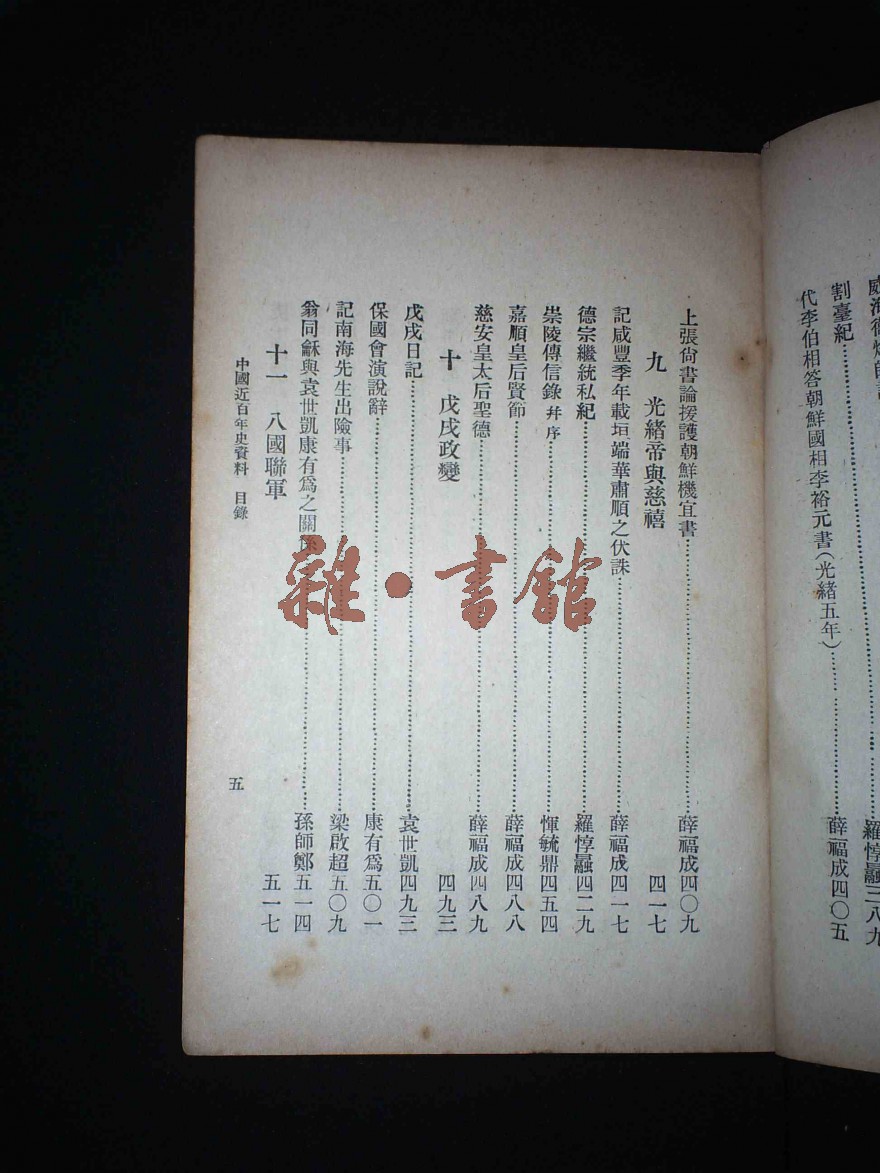 割臺紀……羅惇曧三八九
代李伯相答朝鮮國相李裕元書(光緒五年)……薛福成四〇五
上張尙書論援護朝鮮機宜書……薛福成四〇九
九 光緒帝與慈禧 四一七
記咸豐季年載垣端華肅順之伏誅……薛福成四一七
德宗繼統私紀……羅惇曧四二九
崇陵傳信錄 幷序……惲毓鼎四五四
嘉順皇后賢節……薛福成四八八
慈安皇太后聖德……薛福成四八九
十 戊戌政變 四九三
戊戌日記……袁世凱四九三
保國會演說辭……康有爲五〇一
記南海先生出險事……梁啟超五〇九
翁同龢與袁世凱康有爲之關係……孫師鄭五一四
十一 八國聯軍 五一七
中國近百年史資料 目錄 五
雜·書館